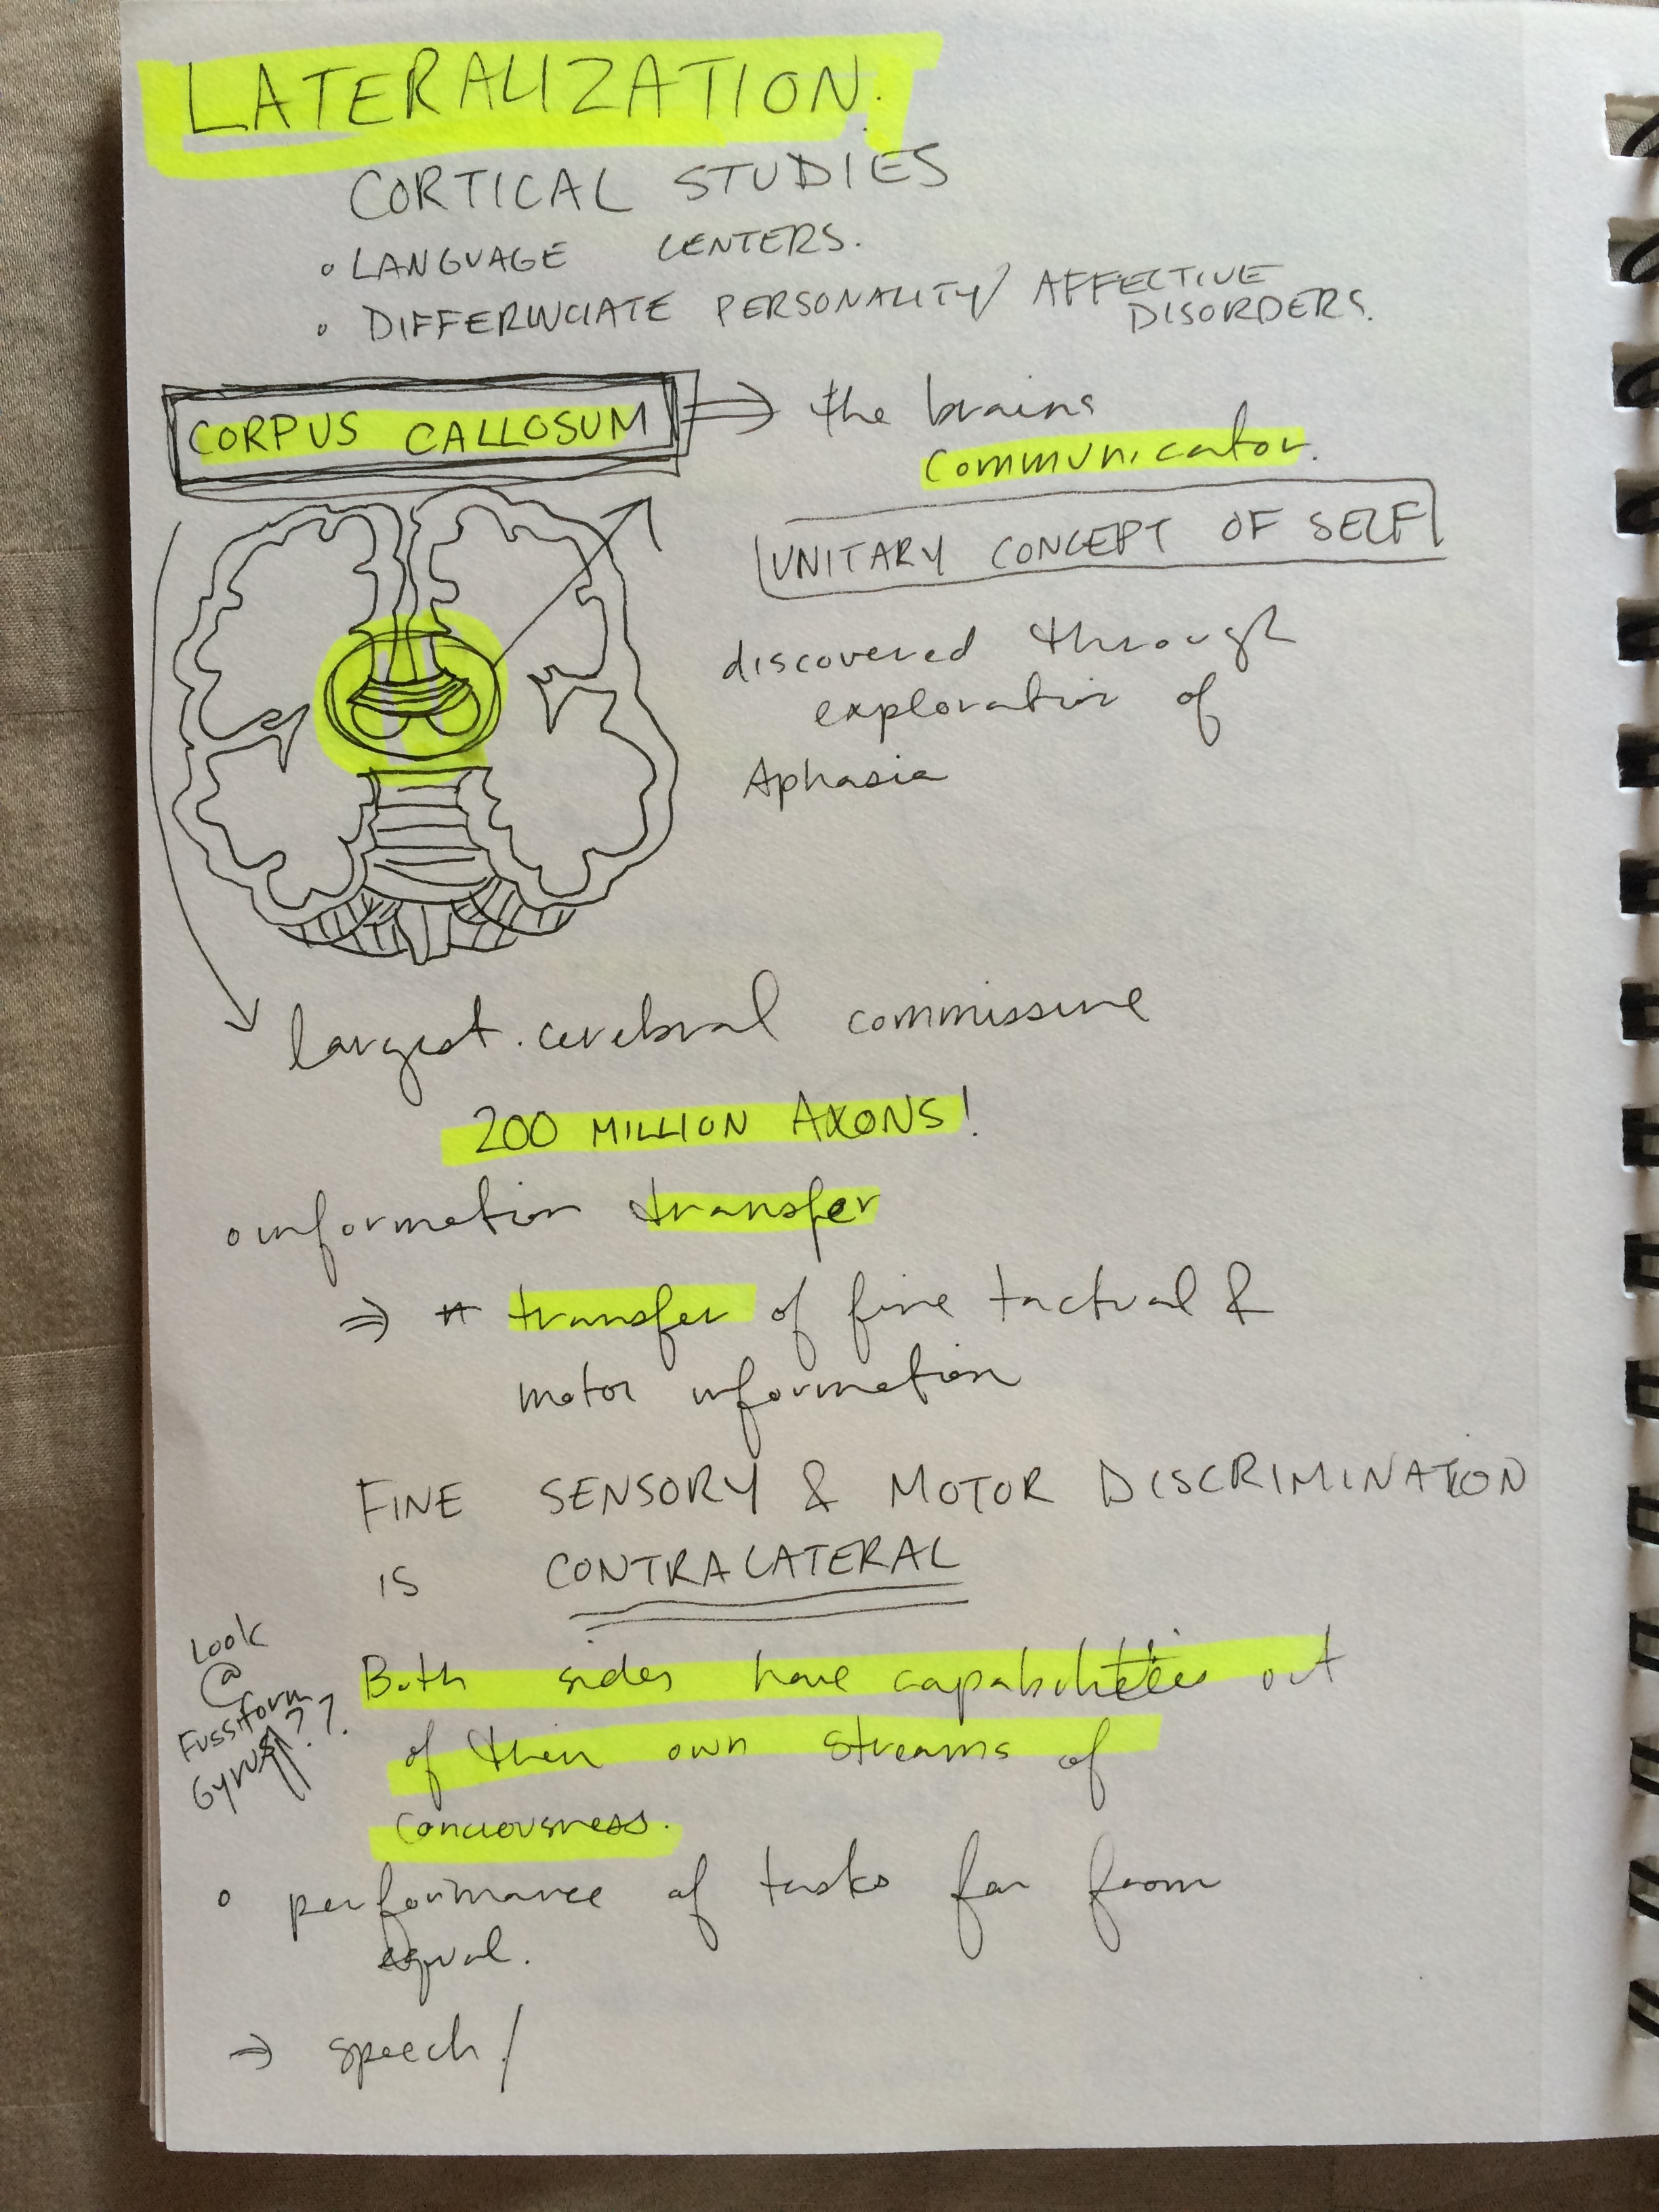 LATERALIZATION.
CORTICAL STUDIES
• LANGUAGE CENTERS.
• DIFFERINCIATE PERSONALITY / AFFECTIVE
DISORDERS.
CORPUS CALLOSUM ⇒ the brains
communicator.
UNITARY CONCEPT OF SELF
discovered through
exploration of
Aphasia
largest cerebral commissure
200 MILLION AXONS!
• information transfer
⇒ transfer of fine tactual &
motor information
FINE SENSORY & MOTOR DISCRIMINATION
IS CONTRALATERAL
Look
@
Fussiform
Gyrus??
Both sides have capabilities out
of their own streams of
conciousness.
• performance of tasks far from
equal.
→ speech /